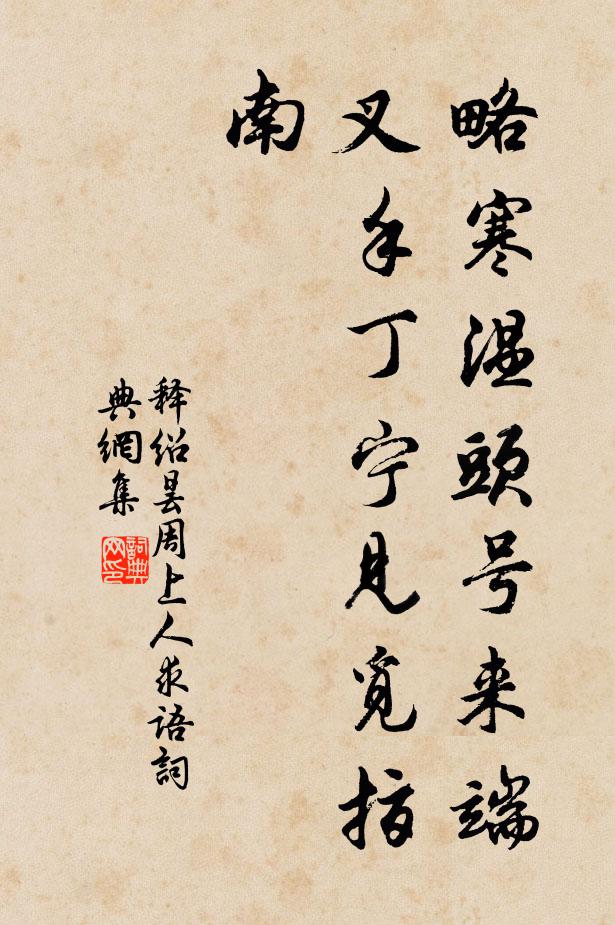 略寒温頭号来端
叉手丁宁見覓指
南
释绍昙周上人求语詞
典網集
詞典网印